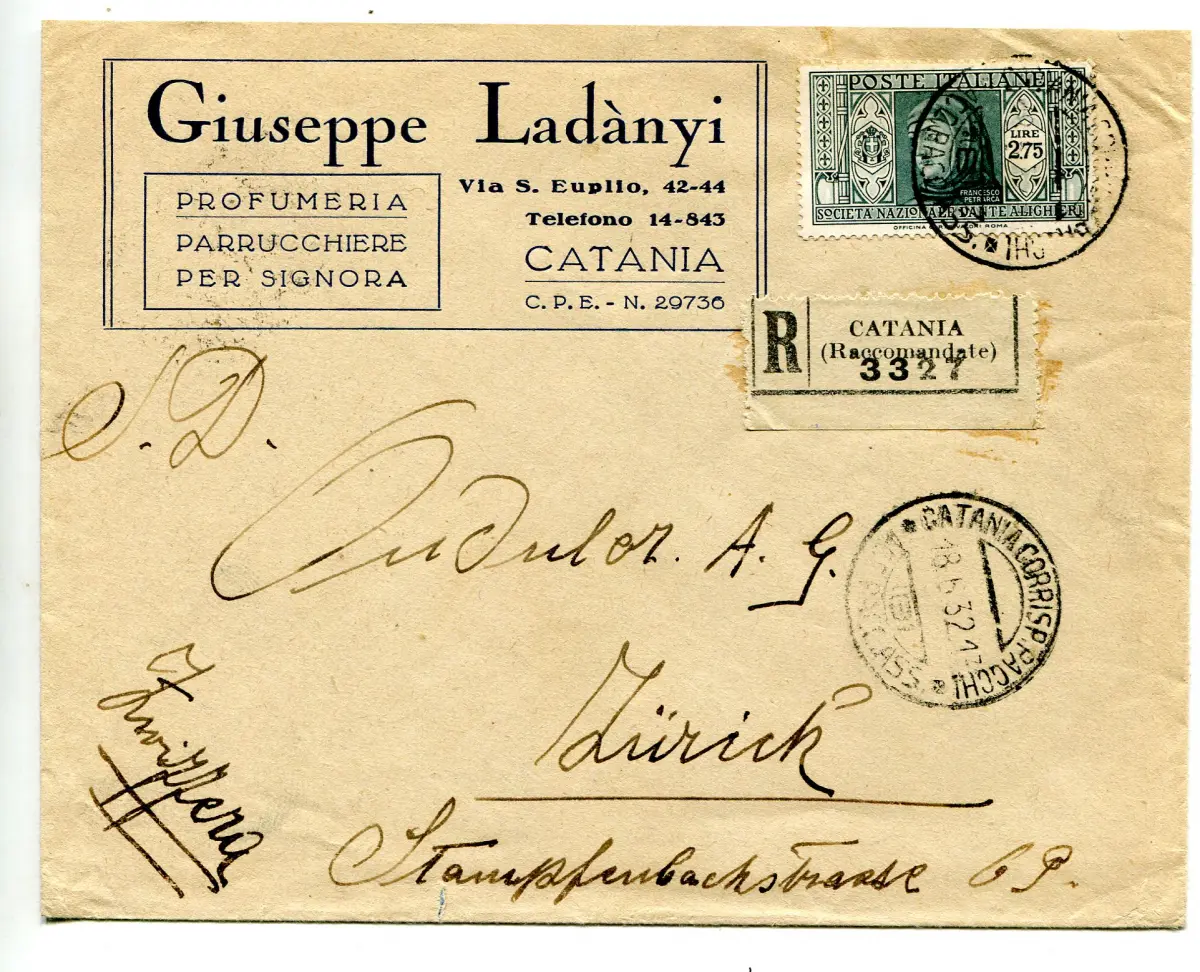 Giuseppe Ladànyi
PROFUMERIA
PARRUCCHIERE
PER SIGNORA
Via S. Euplio, 42-44
Telefono 14-843
CATANIA
C. P. E. - N. 29736
POSTE ITALIANE
LIRE
2.75
FRANCESCO
PETRARCA
SOCIETA NAZIONALE DANTE ALIGHIERI
ROMA
R
CATANIA
(Raccomandate)
3327
CATANIA CORRISP. PACCHI
18.6.32.17
ASS.
S. D.
A. G.
Zürich
Stampfenbachstrasse 6
Zwizzera